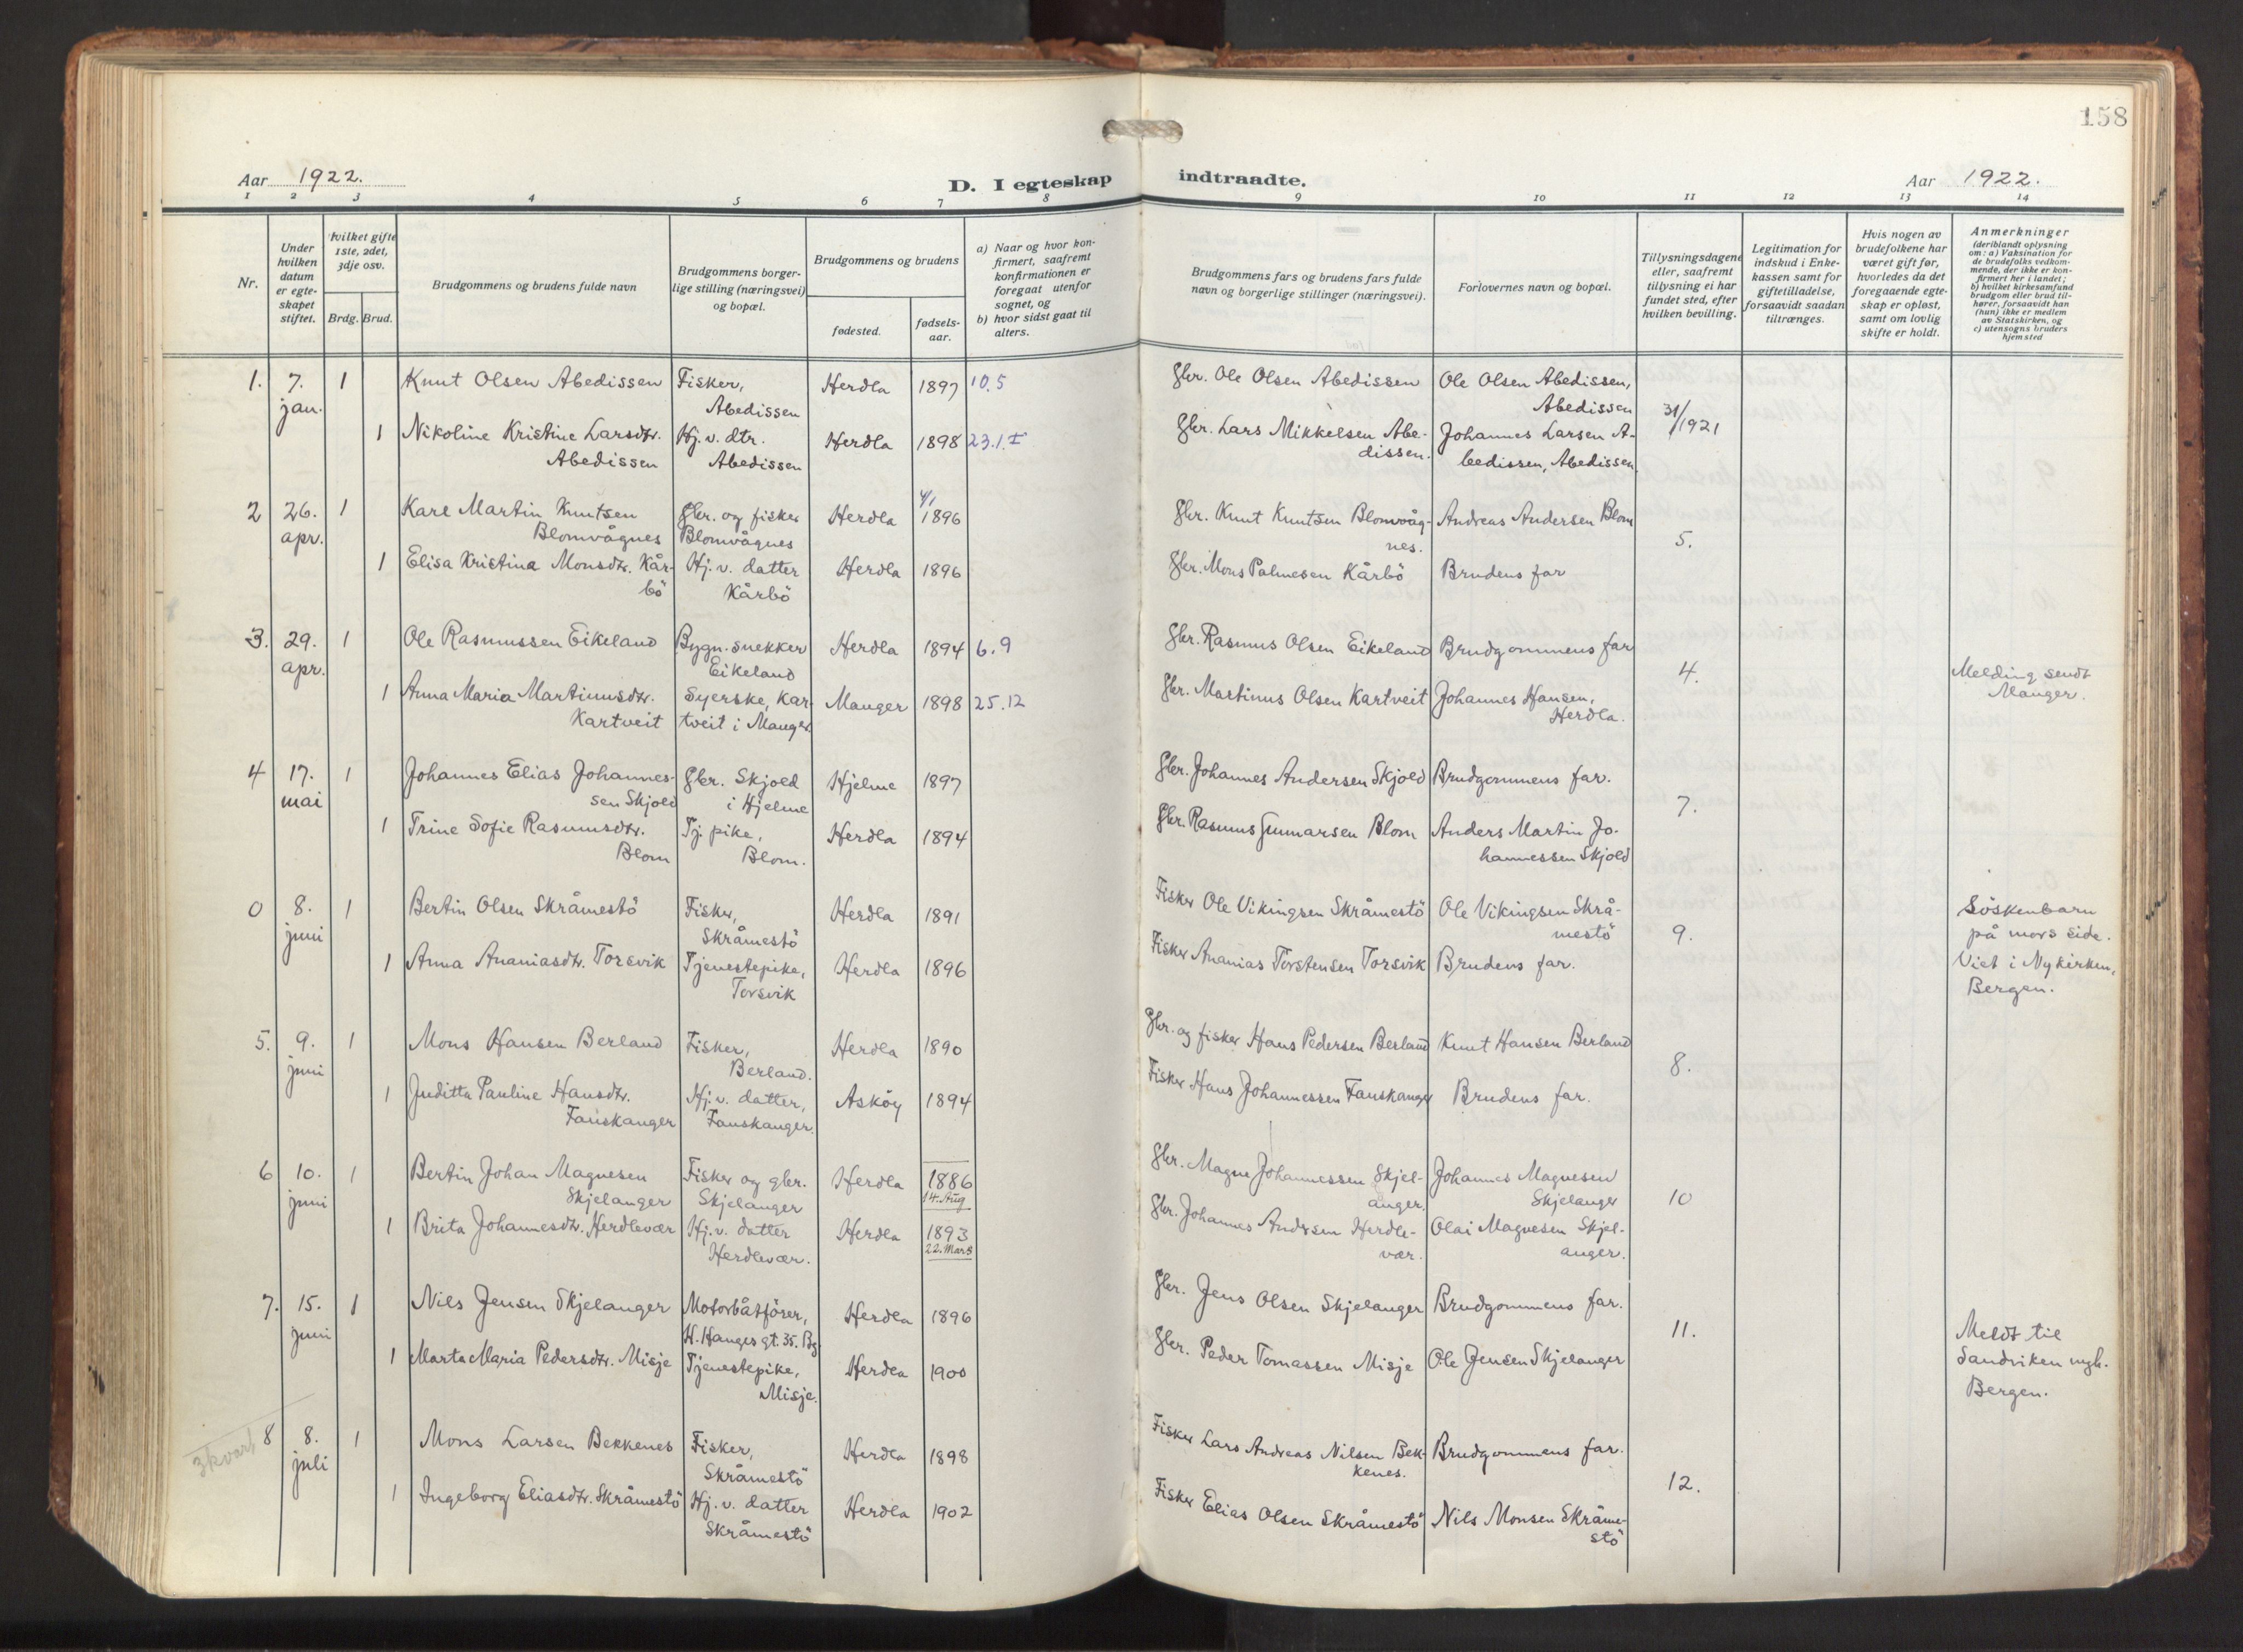 158
Aar 1922.
D. I egteskap indtraadte.
Aar 1922.
1 2 3 4 5 6 7 8 9 10 11 12 13 14
Nr.
Under
hvilken
datum
er egte-
skapet
stiftet.
Hvilket gifte
1ste, 2det,
3dje osv.
Brdg. Brud.
Brudgommens og brudens fulde navn
Brudgommens borger-
lige stilling (næringsvei)
og bopæl.
Brudgommens og brudens
fødested.
fødsels-
aar.
a) Naar og hvor kon-
firmert, saafremt
konfirmationen er
foregaat utenfor
sognet, og
b) hvor sidst gaat til
alters.
Brudgommens fars og brudens fars fulde
navn og borgerlige stillinger (næringsvei).
Forlovernes navn og bopæl.
Tillysningsdagene
eller, saafremt
tillysning ei har
fundet sted, efter
hvilken bevilling.
Legitimation for
indskud i Enke-
kassen samt for
giftetilladelse,
forsaavidt saadan
tiltrænges.
Hvis nogen av
brudefolkene har
været gift før,
hvorledes da det
foregaaende egte-
skap er opløst,
samt om lovlig
skifte er holdt.
Anmerkninger
(deriblandt oplysning
om: a) Vaksination for
de brudefolks vedkom-
mende, der ikke er kon-
firmert her i landet;
b) hvilket kirkesamfund
brudgom eller brud til-
hører, forsaavidt han
(hun) ikke er medlem
av Statskirken, og
c) utensogns bruders
hjemsted
1. 7. 1 Knut Olsen Abedissen Fisker, Herdla 1897 10.5 Gbr. Ole Olsen Abedissen Ole Olsen Abedissen,
jan. Abedissen Abedissen 31/1921
1 Nikoline Kristine Larsdtr. Hj. v. dtr. Herdla 1898 23.1.I Gbr. Lars Mikkelsen Abe- Johannes Larsen A-
Abedissen Abedissen dissen. bedissen, Abedissen.
4/1
2 26. 1 Kare Martin Knutsen Gbr. og fisker Herdla 1896 Gbr. Knut Knutsen Blomvåg- Andreas Andersen Blom
apr. Blomvågnes Blomvågnes nes. 5.
1 Elisa Kristina Monsdtr. Kår- Hj. v. datter Herdla 1896 Gbr. Mons Palmesen Kårbö Brudens far
bö Kårbö
3. 29. 1 Ole Rasmussen Eikeland Bygn. snekker Herdla 1894 6.9 Gbr. Rasmus Olsen Eikeland Brudgommens far
apr. Eikeland 4. Melding sendt
1 Anna Maria Martinusdtr. Syerske, Kar- Manger 1898 25.12 Gbr. Martinus Olsen Kartveit Johannes Hansen, Manger.
Kartveit tveit i Manger Herdla.
4 17. 1 Johannes Elias Johannes- Gbr. Skjold Hjelme 1897 Gbr. Johannes Andersen Skjold Brudgommens far.
mai sen Skjold i Hjelme 7.
1 Trine Sofie Rasmusdtr. Tj. pike, Herdla 1894 Gbr. Rasmus Gunnarsen Blom Anders Martin Jo-
Blom Blom. hannessen Skjold
0 8. 1 Bertin Olsen Skråmestö Fisker, Herdla 1891 Fisker Ole Vikingsen Skråmestö Ole Vikingsen Skrå- Söskenbarn
juni Skråmestö mestö 9. på mors side.
1 Anna Ananiasdtr. Torsvik Tjenestepike, Herdla 1896 Fisker Ananias Torstensen Torsvik Brudens far. Viet i Nykirken,
Torsvik Bergen.
5. 9. 1 Mons Hansen Berland Fisker, Herdla 1890 Gbr. og fisker Hans Pedersen Berland Knut Hansen Berland
juni Berland. 8.
1 Juditta Pauline Hansdtr. Hj. v. datter, Asköy 1894 Fisker Hans Johannessen Fauskanger Brudens far.
Fauskanger Fauskanger.
6 10. 1 Bertin Johan Magnesen Fisker og gbr. Herdla 1886 Gbr. Magne Johannessen Skjel- Johannes Magnesen
juni Skjelanger Skjelanger 14. Aug anger. Skjelanger 10
1 Brita Johannesdtr. Herdlevær Hj. v. datter Herdla 1893 Gbr. Johannes Andersen Herdle- Olai Magnesen Skjel-
Herdlevær. 22. Mars vær. anger.
7. 15. 1 Nils Jensen Skjelanger Motorbåtförer, Herdla 1896 Gbr. Jens Olsen Skjelanger Brudgommens far.
juni H. Hauges gt. 35. Bg. 11. Meldt til
1 Marta Maria Pedersdtr. Misje Tjenestepike, Herdla 1900 Gbr. Peder Tomassen Misje Ole Jensen Skjelanger Sandviken mgh.
Misje. Bergen.
3 kvart
8 8. 1 Mons Larsen Bekkenes Fisker, Herdla 1898 Fisker Lars Andreas Nilsen Bek- Brudgommens far.
juli Skråmestö kenes. 12.
1 Ingeborg Eliasdtr. Skråmestö Hj. v. datter Herdla 1902 Fisker Elias Olsen Skråmestö Nils Monsen Skråme-
Skråmestö stö